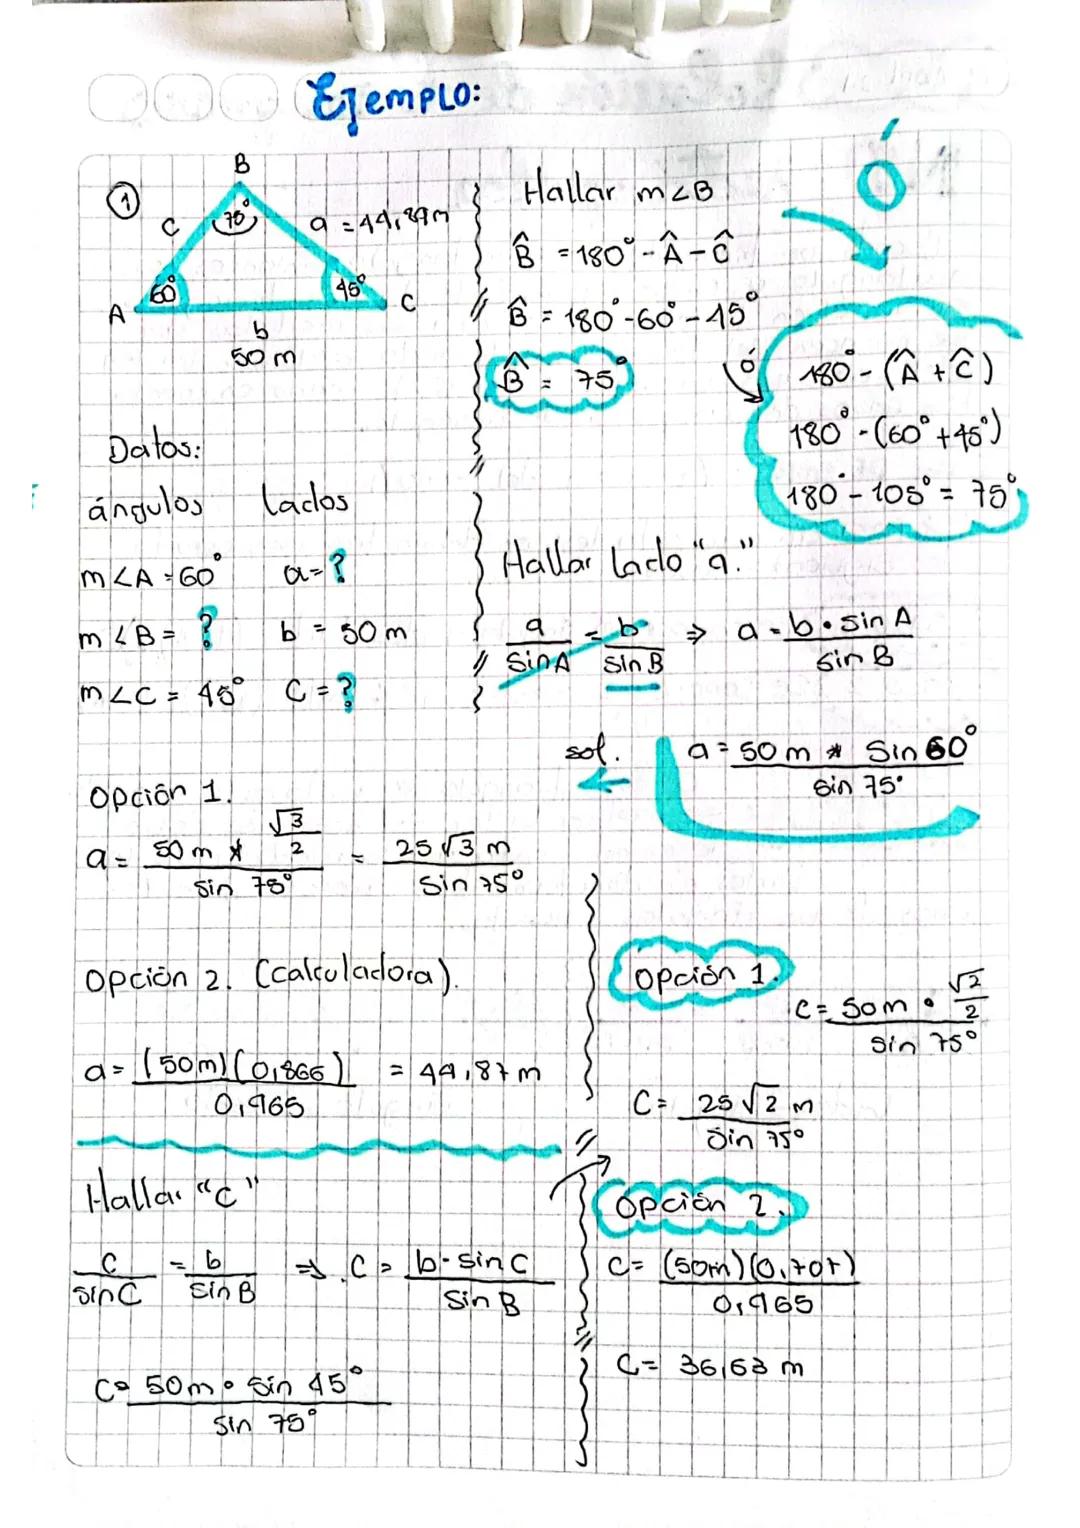 Ejemplo:
1
B
75°
c
a = 44,87m
60°
45°
A
C
b
50 m
Datos:
ángulos lados
m∠A = 60° a=?
m∠B = ? b = 50 m
m∠C = 45° C = ?
Hallar m∠B
B̂ = 180° - Â - Ĉ
B̂ = 180° - 60° - 45°
B̂ = 75°
Ó
ó
180° - (Â + Ĉ)
180° - (60° + 45°)
180° - 105° = 75°
Hallar lado "a."
a/Sin A = b/Sin B ⇒ a = b • sin A/Sin B
a = 50 m * Sin 60°/Sin 75°
sol.
Opción 1.
a = 50 m * √3/2/Sin 75° = 25 √3 m/Sin 75°
Opción 2. (calculadora).
a = (50m)(0,866)/0,965 = 44,87 m
Hallar "C"
C/sin C = b/Sin B ⇒ C = b • sin C/Sin B
C = 50m • sin 45°/Sin 75°
Opción 1.
C = 50m • √2/2/Sin 75°
C = 25 √2 m/Sin 75°
Opción 2.
C = (50m)(0,707)/0,965
C = 36,63 m